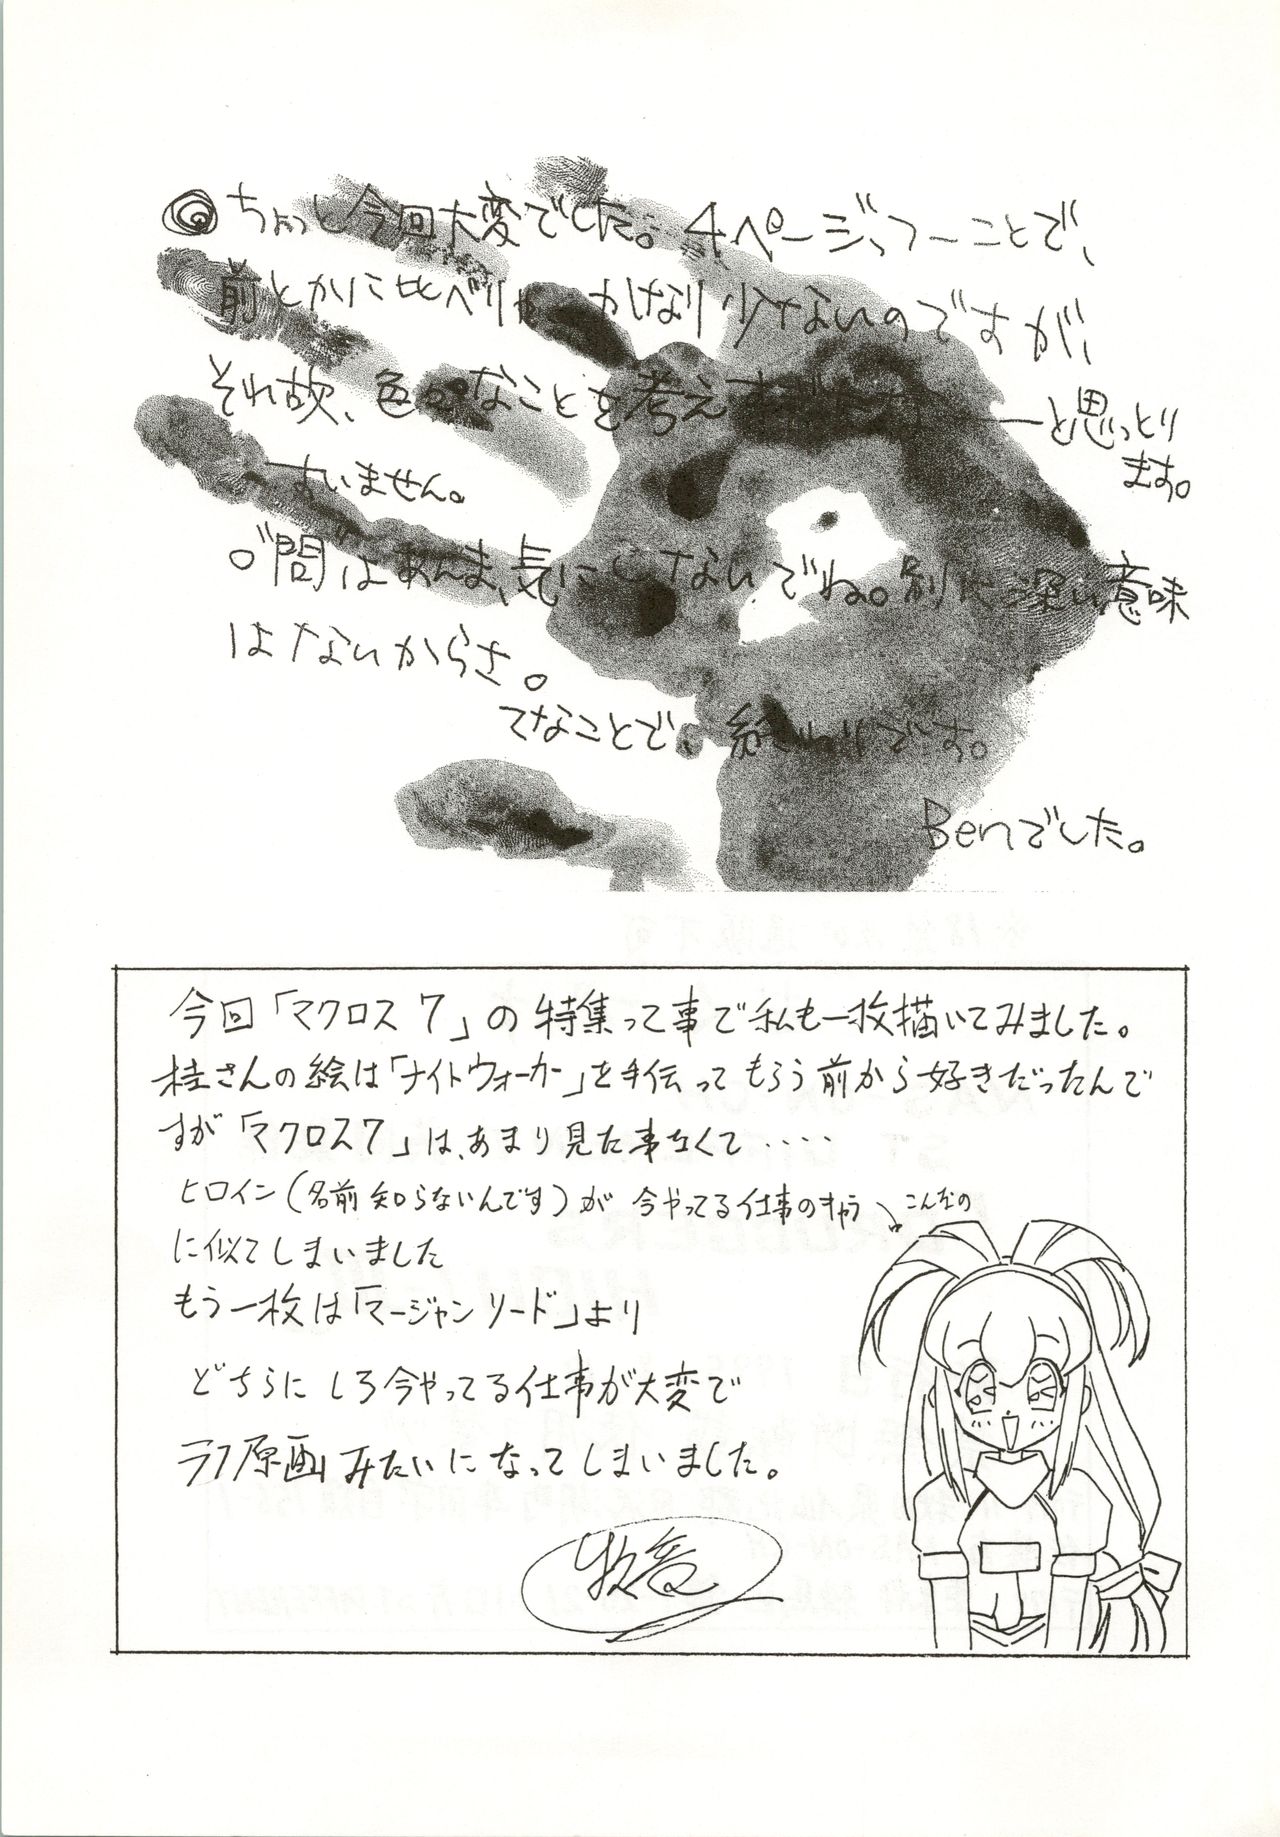 ◎ちょっと今回大変でした。4ページっつーことで、
前とかに比べりゃ かなり少ないのですが、
それ故、色々なことを考え
ーと思っとり
ます。
すいません。
○"問"はあんま、気にしないでね。別に深い意味
はないからさ。
てなことで、終わりです。
Benでした。
今回「マクロス7」の特集って事で私も一枚描いてみました。
桂さんの絵は「ナイトウォーカー」を手伝ってもらう前から好きだったんで
すが「マクロス7」は、あまり見た事なくて‥‥
ヒロイン(名前知らないんです)が 今やってる仕事のキャラ
こんなの
に似てしまいました
もう一枚は「マージャンソード」より
どちらにしろ今やってる仕事が大変で
ラフ原画みたいになってしまいました。